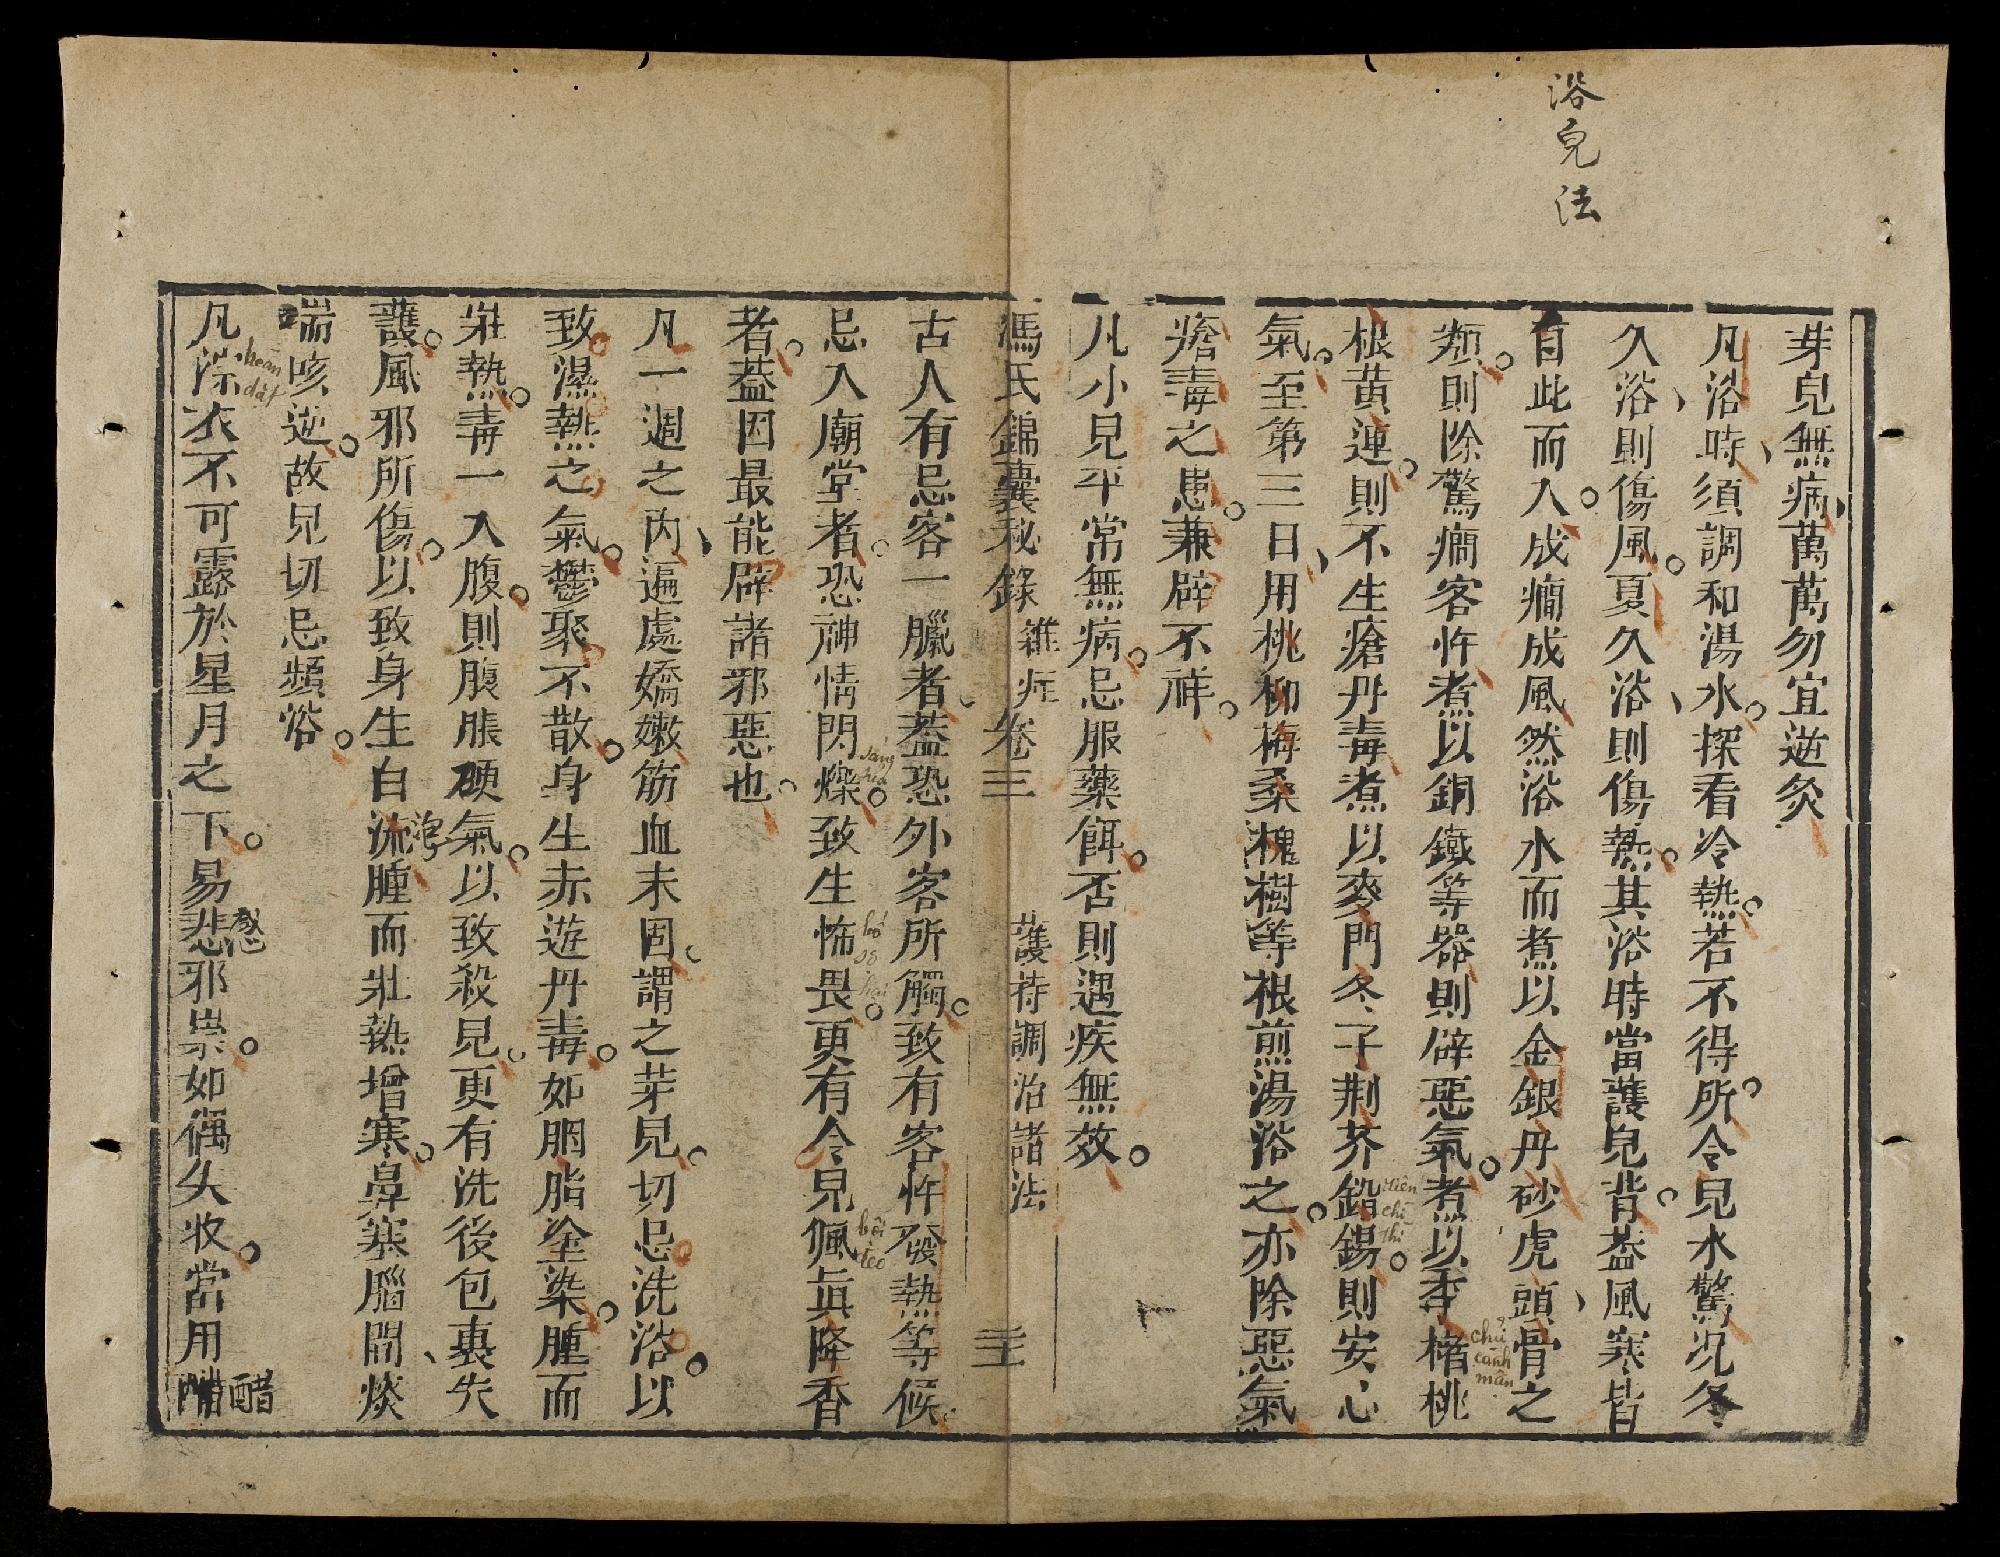 浴兒法
芽兒無病萬萬勿宜逆灸
凡浴時須調和湯水探看冷熱若不得所令兒水驚況冬
久浴則傷風夏久浴則傷熱其浴時當護兒背葢風寒皆
自此而入成癇成風然浴水而煮以金銀丹砂虎頭骨之
類則除驚癇客忤煮以銅鐵等器則辟惡氣煮以香楮桃
chử
cành
mận
根黃連則不生瘡丹毒煮以麥門冬子荆芥鉛錫則安心
diên
chì
thì
氣至第三日用桃柳梅桑槐樹等根煎湯浴之亦除惡氣
瘡毒之患兼辟不祥
凡小兒平常無病忌服藥餌否則遇疾無效
馮氏錦囊秘錄 雜症卷三 護持調治諸法 圭
古人有忌客一臘者葢恐外客所觸致有客忤發熱等候
忌入廟堂者恐神情閃爍致生怖畏更有令兒佩眞降香
sáng
hóa
bố
sợ
hai
bội
deo
者葢因最能辟諸邪惡也
凡一週之內遍處嬌嫩筋血未固謂之芽兒切忌洗浴以
致濕熱之氣鬱聚不散身生赤遊丹毒如胭脂塗染腫而
壯熱毒一入腹則腹脹硬氣以致殺兒更有洗後包裹失
護風邪所傷以致身生白流腫而壯熱增寒鼻塞腦閉痰
泡
喘咳逆故兒切忌頻浴
凡浣衣不可露於星月之下易悲邪祟如偶失收當用醋
hoãn
dặt
惑
醋